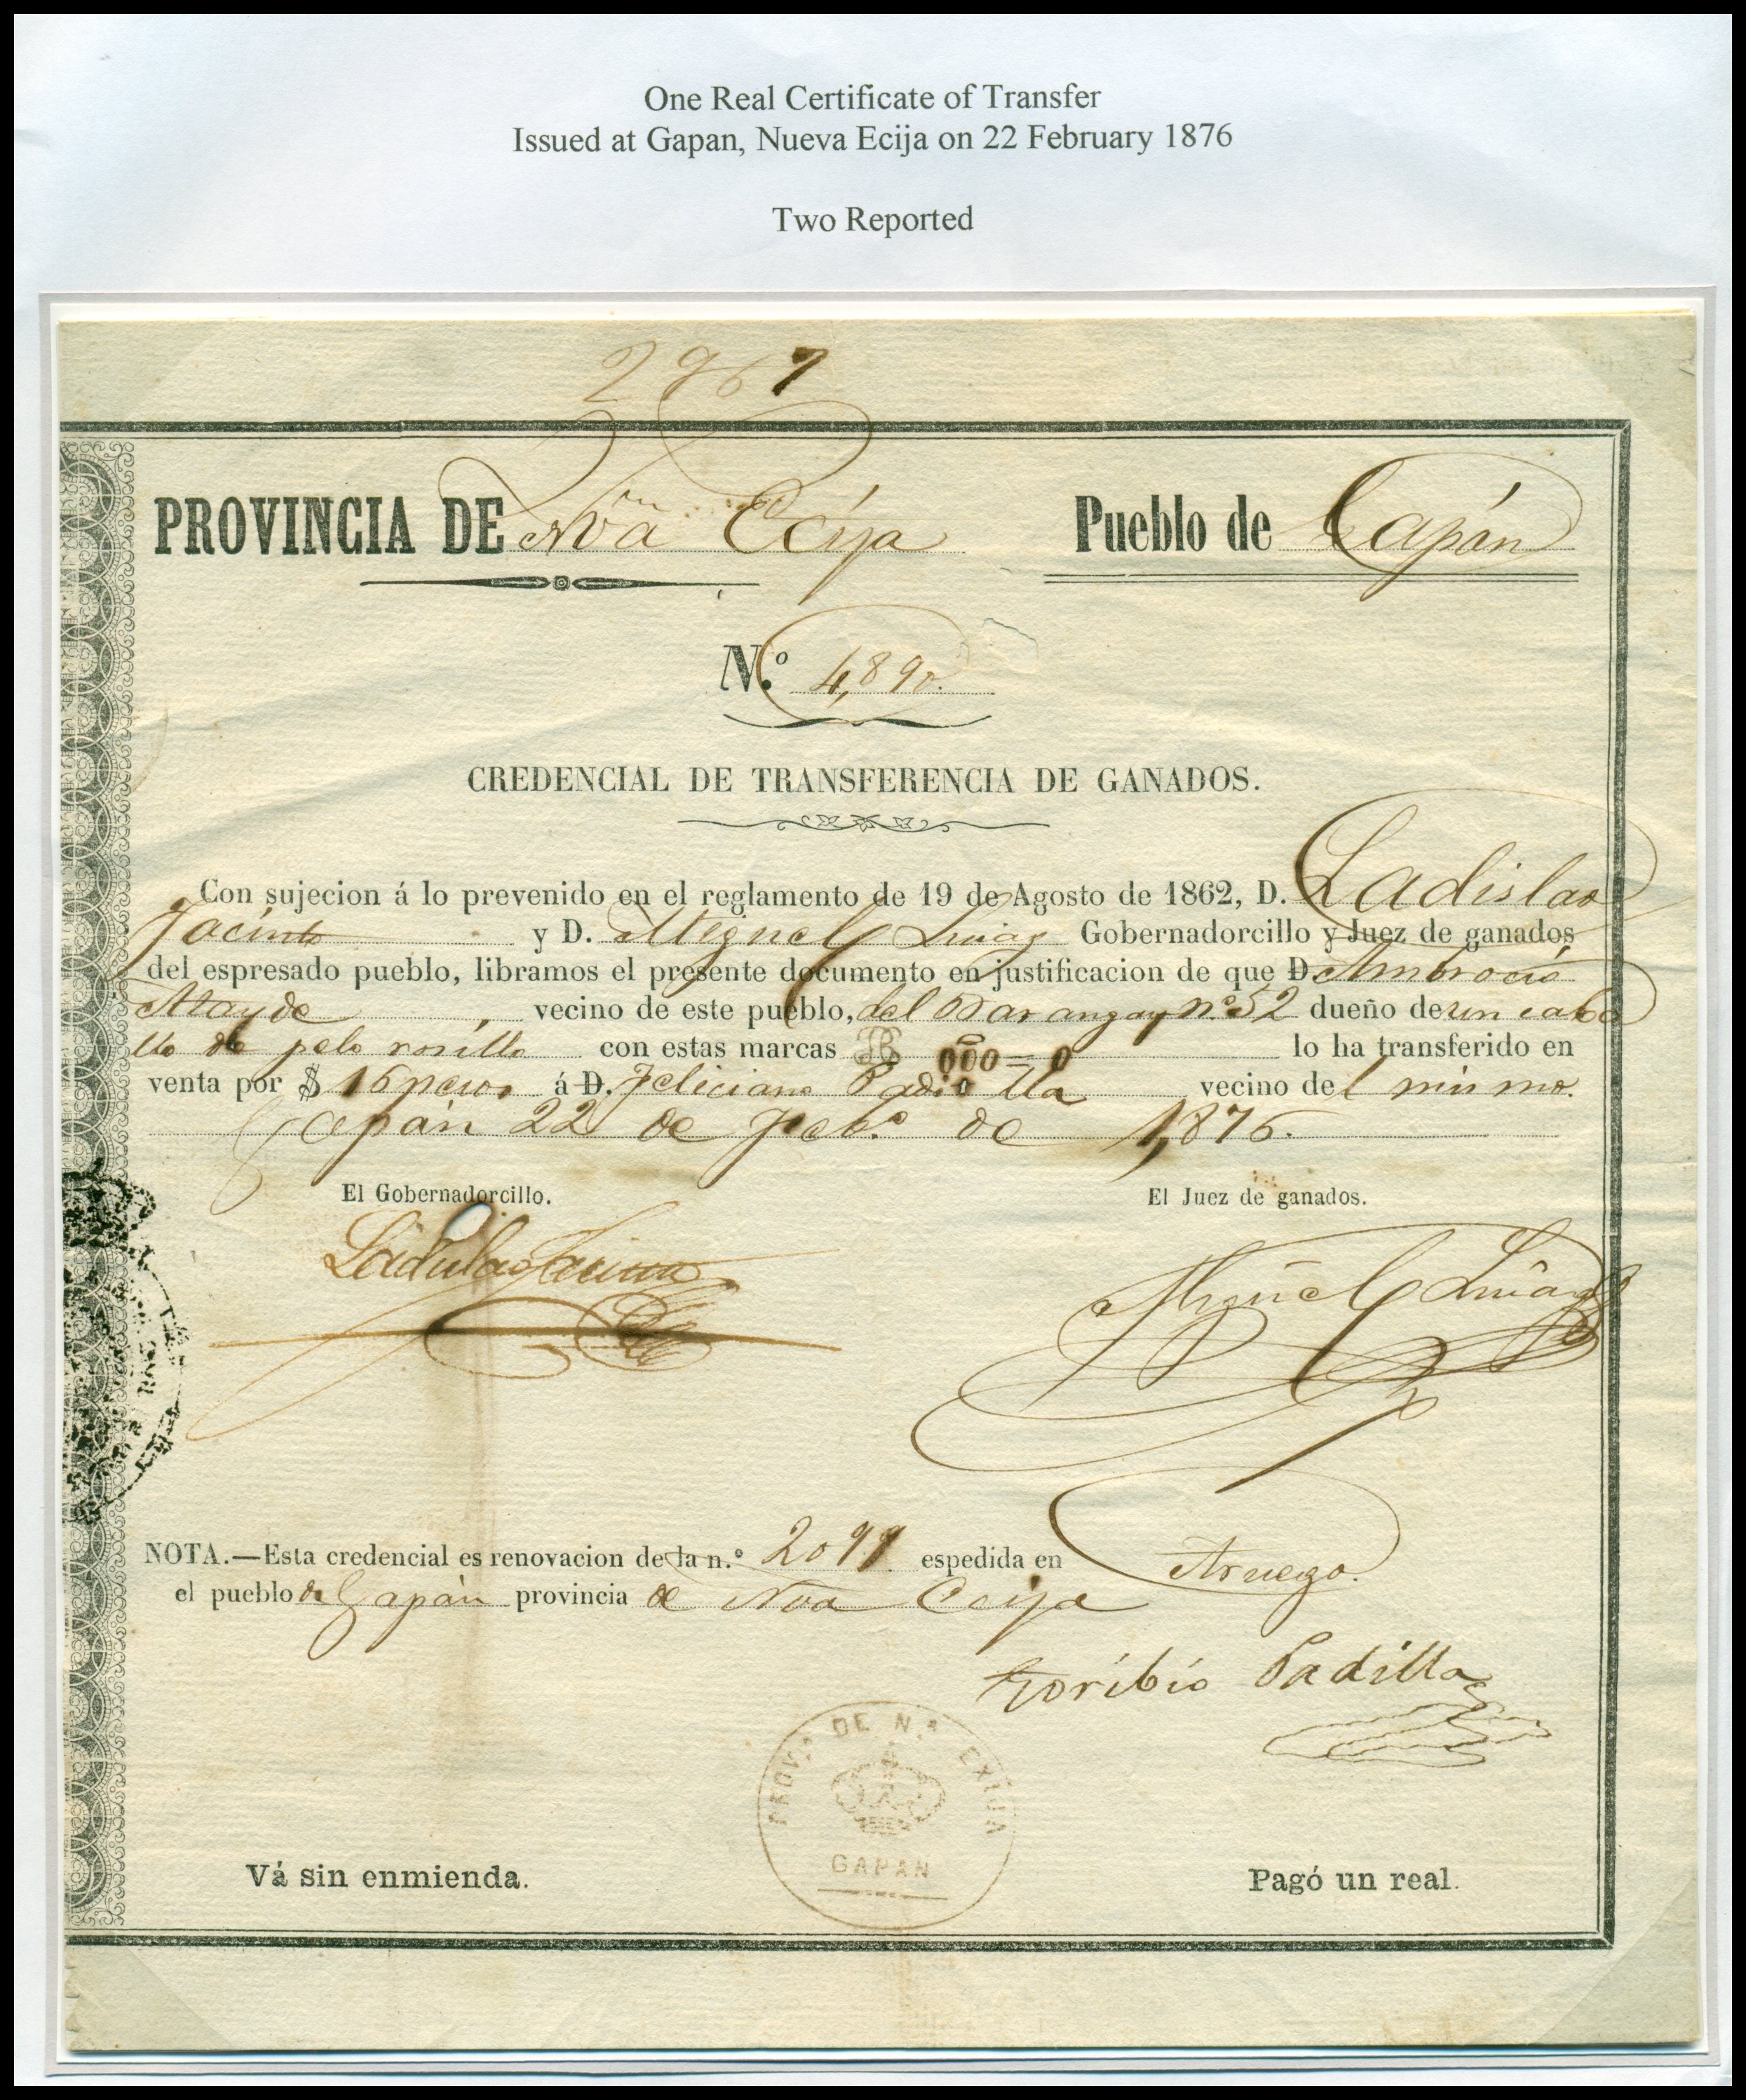 One Real Certificate of Transfer
Issued at Gapan, Nueva Ecija on 22 February 1876
Two Reported
2967
PROVINCIA DE Nva Ecija Pueblo de Gapán
N.º 4,890.
CREDENCIAL DE TRANSFERENCIA DE GANADOS.
Con sujecion á lo prevenido en el reglamento de 19 de Agosto de 1862, D. Ladislao
Jacinto y D. Miguel Gobernadorcillo y Juez de ganados
del espresado pueblo, libramos el presente documento en justificacion de que D. Ambrocio
vecino de este pueblo, del Barangay n.º 52 dueño de un caba
llo de pelo rosillo con estas marcas lo ha transferido en
venta por $ 16 pesos á D. Feliciano Padilla vecino del mismo.
Gapán 22 de Feb.º de 1,876.
El Gobernadorcillo. El Juez de ganados.
Ladislao Jacinto Miguel
NOTA.—Esta credencial es renovacion de la n.º 2099 espedida en
el pueblo de Gapán provincia de Nva Ecija
Aruego.
Toribio Padilla
PROV.A DE N.A EXIJA
GAPAN
Vá sin enmienda. Pagó un real.